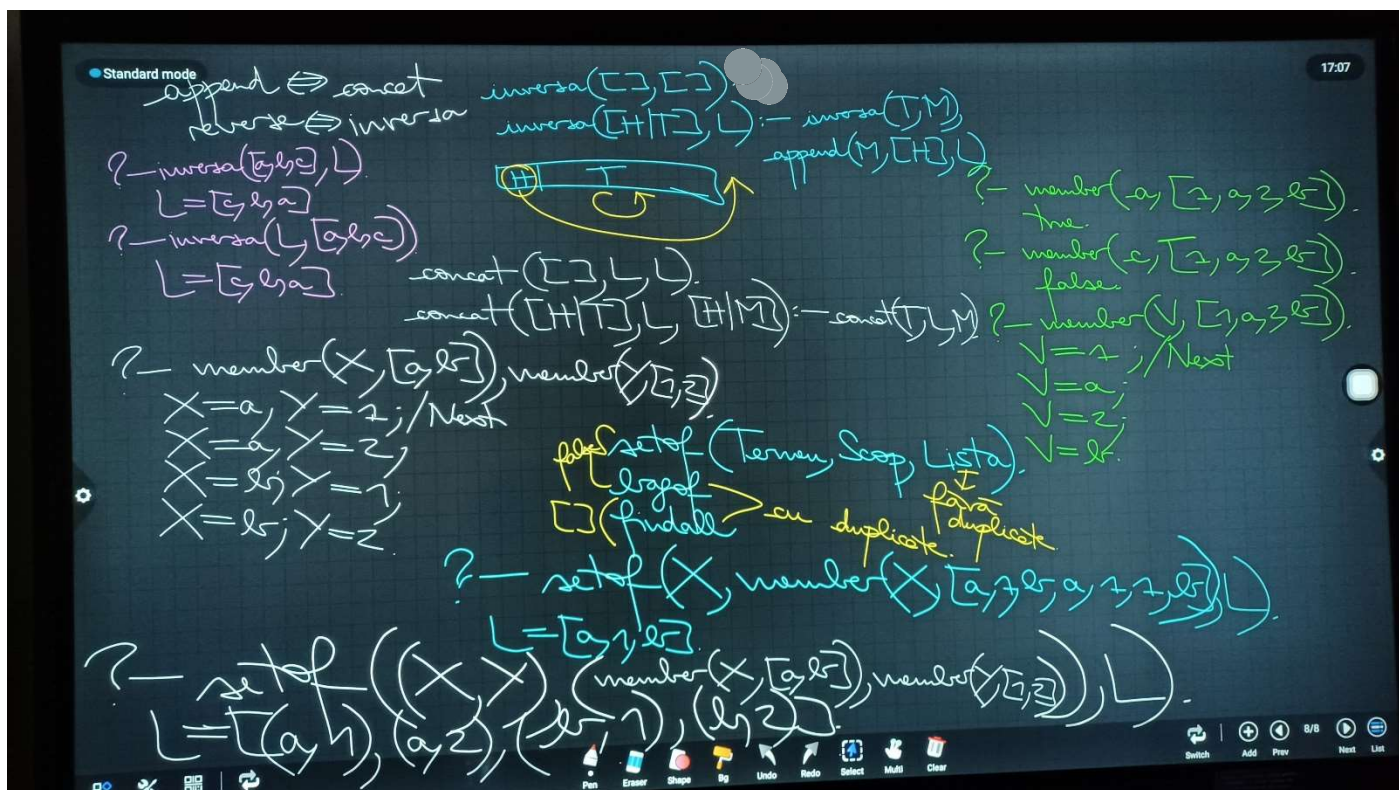 Standard mode
17:07
append ⇔ concat
reverse ⇔ inversa
?– inversa([a,b,c], L)
L=[c,b,a]
?– inversa(L, [a,b,c])
L=[c,b,a].
inversa([], []).
inversa([H|T], L) :– inversa(T,M),
append(M, [H], L)
H T
concat([], L, L).
concat([H|T], L, [H|M]) :– concat(T,L,M)
?– member(a, [1, a, 2, b]).
true.
?– member(c, [1, a, 2, b]).
false.
?– member(V, [1, a, 2, b]).
V=1 ; /Next
V=a;
V=2;
V=b.
?– member(X, [a,b]), member(Y, [1,2])
X=a, Y=1; /Next
X=a, Y=2;
X=b; Y=1;
X=b; Y=2.
false setof (Termen, Scop, Lista).
bagof
[] findall
cu duplicate.
fara
duplicate.
?– setof(X, member(X, [a,1,b,a,1,1,b]), L).
L=[a,1,b].
?– setof((X,Y), (member(X, [a,b]), member(Y, [1,2])), L).
L=[(a,1), (a,2), (b,1), (b,2)].
Pen
Eraser
Shape
Bg
Undo
Redo
Select
Multi
Clear
Switch
Add
Prev
8/8
Next
List